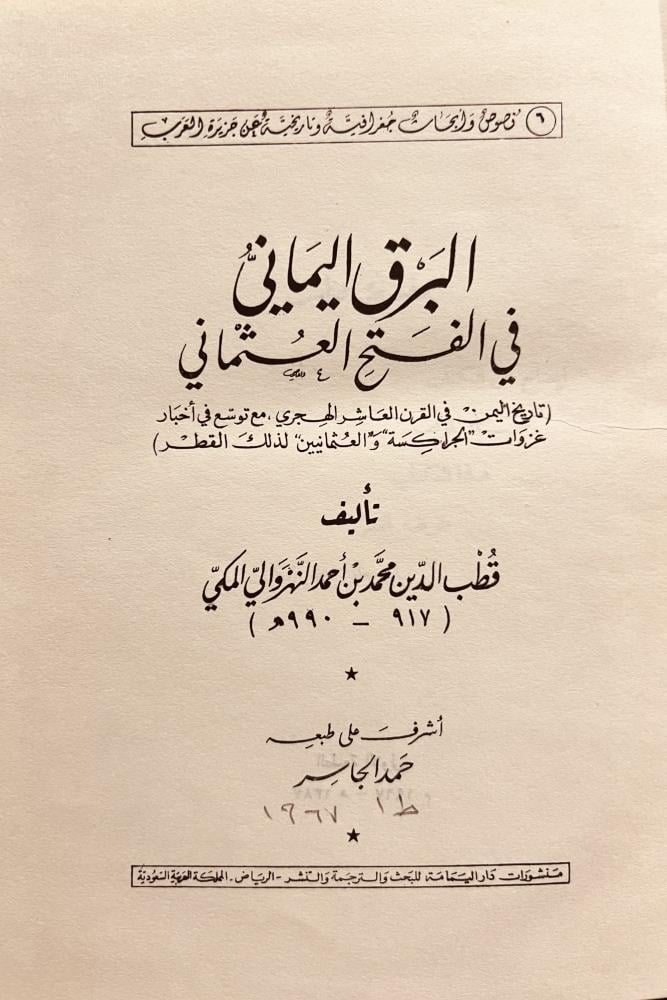 ٦ نصوص وأبحاث جغرافية وتاريخية عن جزيرة العرب
البَرْق اليَمَانيُّ
في الفَتْحِ العُثْماني
(تاريخ اليمن في القرن العاشر الهجري، مع توسّع في أخبار
غزوات "الجراكسة" و"العثمانيين" لذلك القطر)
تأليف
قُطْب الدّين محمَّد بنْ أحمد النَّهْرَواليّ المكيّ
(٩١٧ – ٩٩٠هـ)
أشرف على طبعه
حمد الجاسر
ط ١ ١٩٦٧
منشورات دار اليمامة للبحث والترجمة والنشر - الرياض - المملكة العربية السعودية